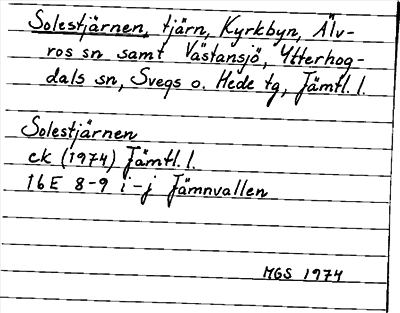 Solestjärnen, tjärn, Kyrkbyn, Älv-
ros sn samt Västansjö, Ytterhog-
dals sn, Svegs o. Hede tg, Jämtl. l.
Solestjärnen
ek (1974) Jämtl. l.
16E 8-9 i-j Jämnvallen
MGS 1974